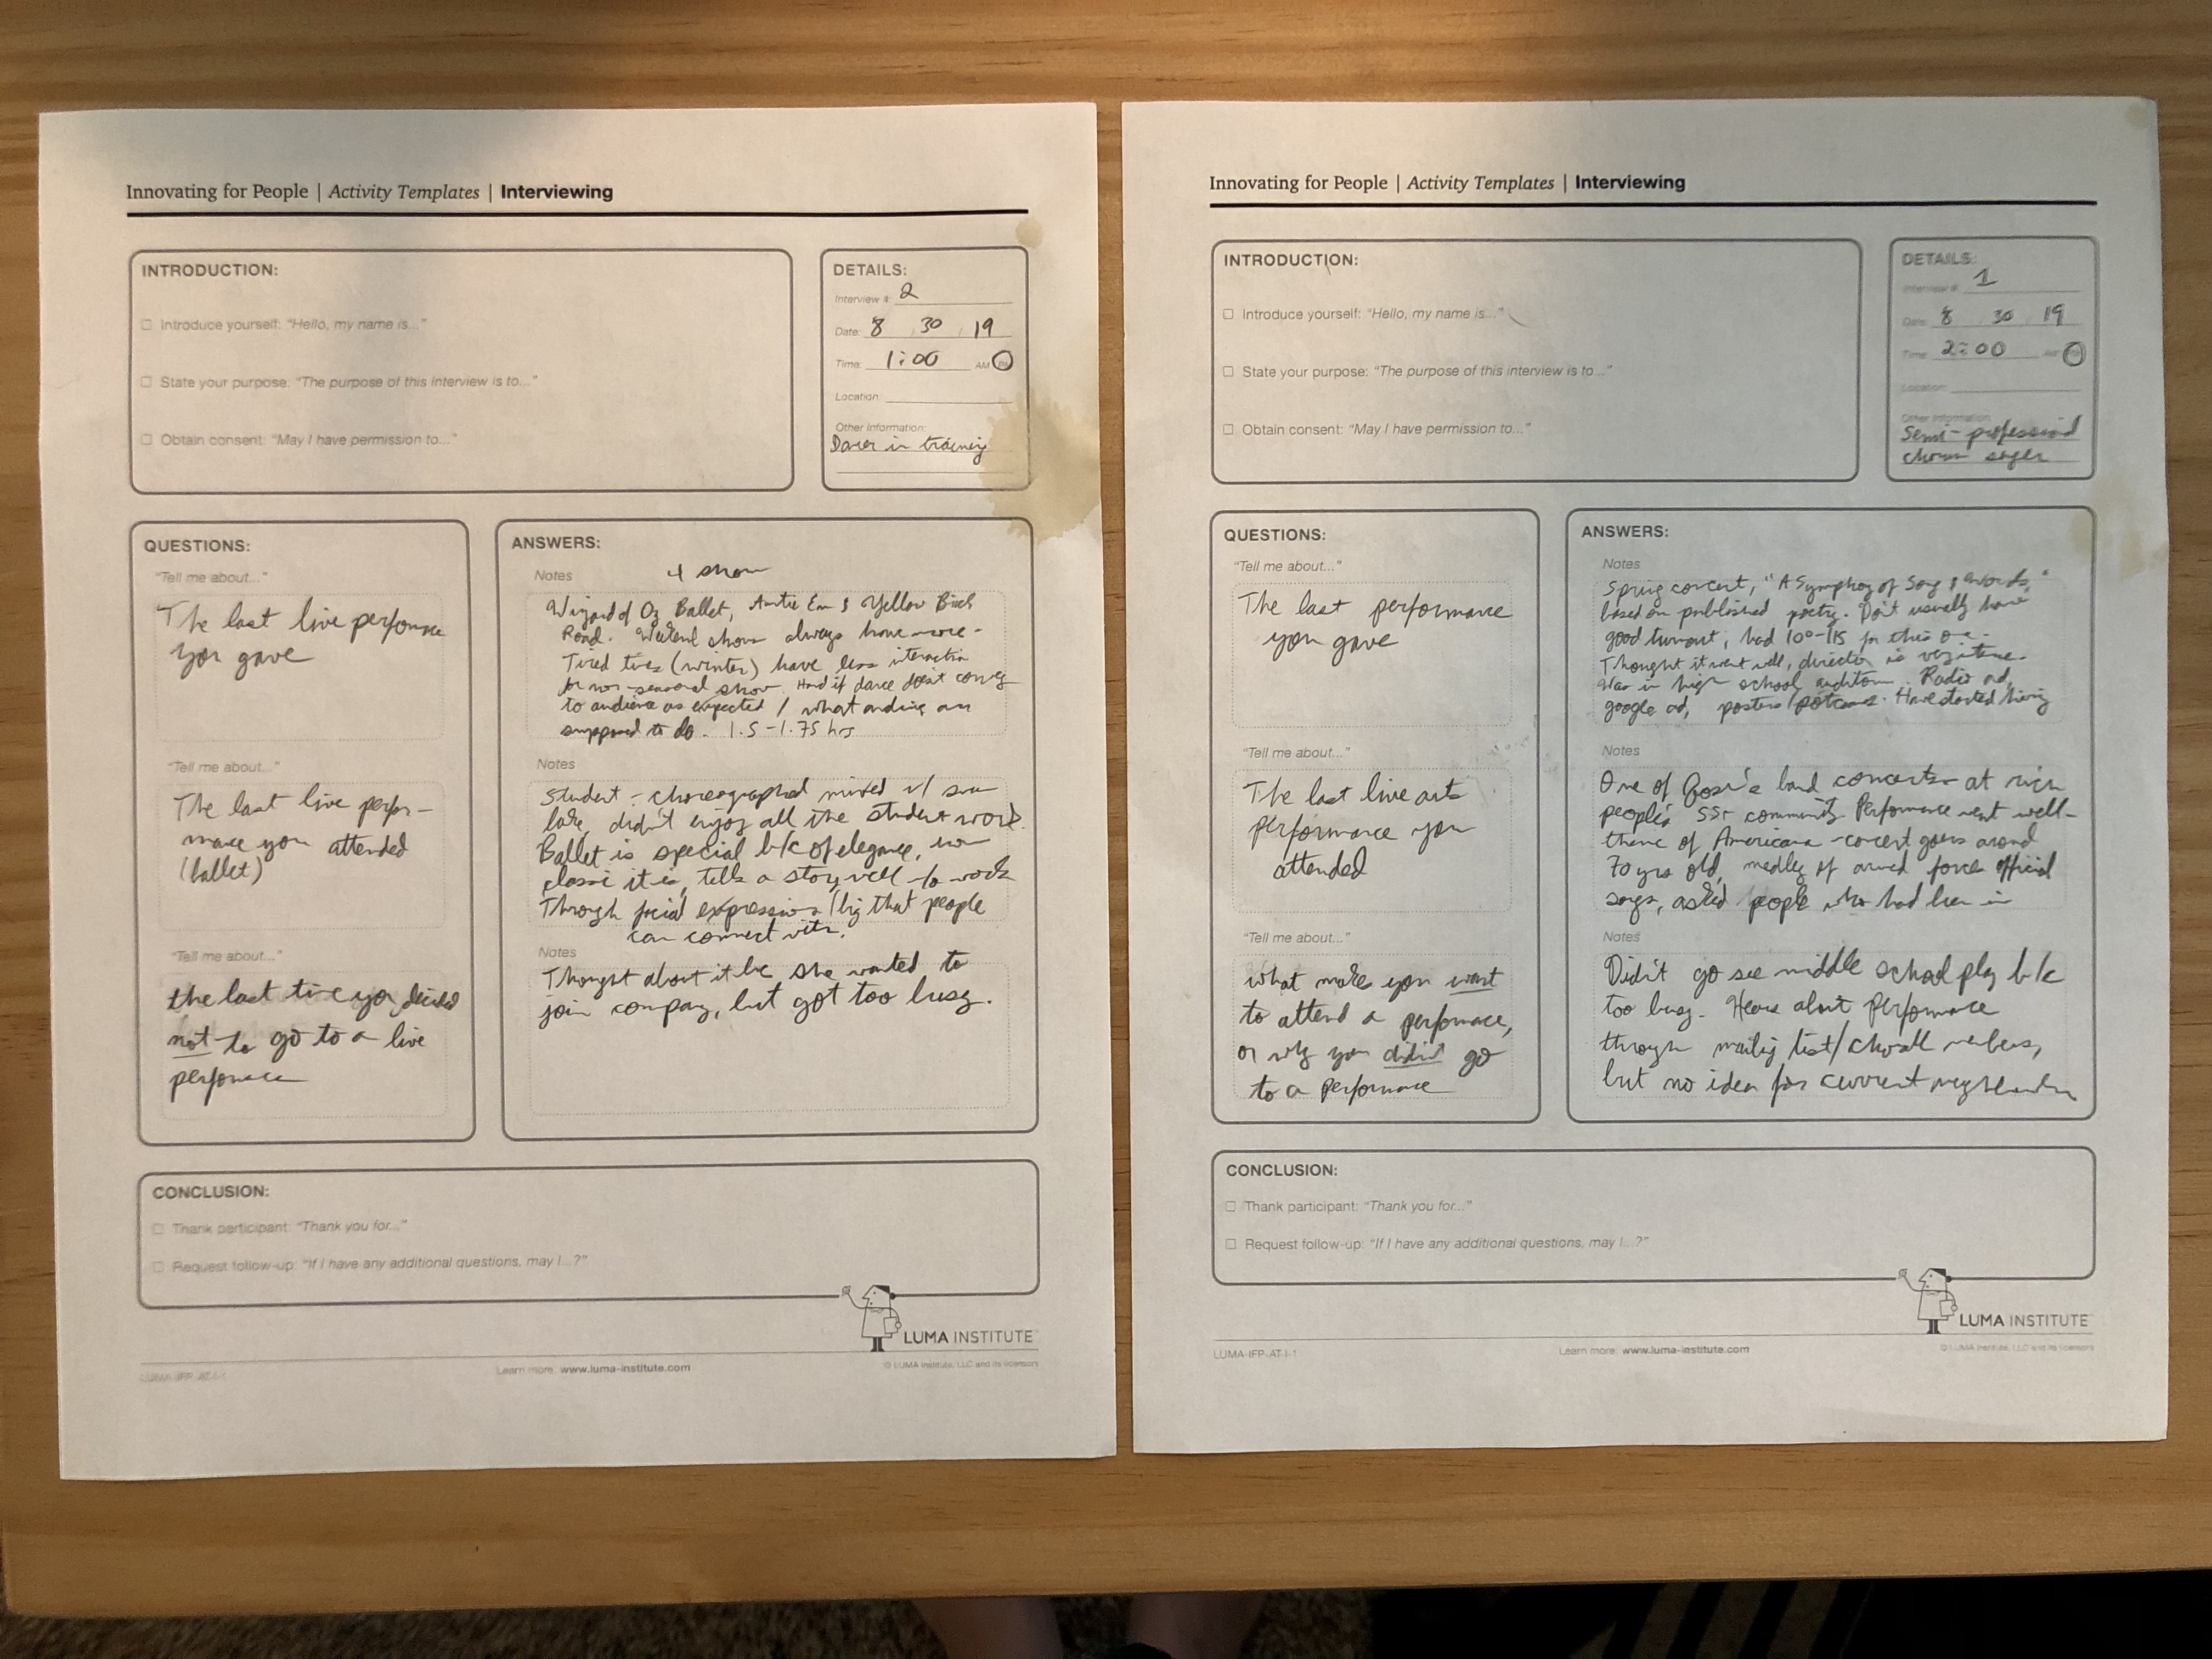 Innovating for People | Activity Templates | Interviewing
INTRODUCTION:
Introduce yourself: "Hello, my name is..."
State your purpose: "The purpose of this interview is to..."
Obtain consent: "May I have permission to..."
DETAILS:
Interview #: 2
Date: 8 30 19
Time: 1:00 AM PM
Location:
Other Information:
in training
QUESTIONS:
"Tell me about..."
The last live
you gave
"Tell me about..."
The last live perfor-
mance you attended
(ballet)
"Tell me about..."
the last time you decided
not to go to a live
ANSWERS:
Notes
4 show
Wizard of Oz Ballet, Auntie Em & Yellow Brick
Road. Weekend shows always have more.
Tired times (winter) have less interaction
for non-seasonal show. Hard if dance doesn't convey
to audience as expected / what audience
supposed to do. 1.5-1.75 hrs
Notes
Student-choreographed mixed w/ swan
lake, didn't enjoy all the student work.
Ballet is special b/c of elegance, how
classic it is, tells a story well - to work
Through facial expressions / that people
can connect with.
Notes
Thought about it b/c she wanted to
join company, but got too busy.
CONCLUSION:
Thank participant: "Thank you for..."
Request follow-up: "If I have any additional questions, may I...?"
LUMA INSTITUTE
LUMA-IFP-AT-I-1
Learn more: www.luma-institute.com
© LUMA Institute, LLC and its licensors
Innovating for People | Activity Templates | Interviewing
INTRODUCTION:
Introduce yourself: "Hello, my name is..."
State your purpose: "The purpose of this interview is to..."
Obtain consent: "May I have permission to..."
DETAILS:
Interview #: 1
Date: 8 30 19
Time: 2:00 AM PM
Location:
Other Information:
Semi-professional
singer
QUESTIONS:
"Tell me about..."
The last performance
you gave
"Tell me about..."
The last live arts
performance you
attended
"Tell me about..."
what makes you want
to attend a performance,
or why you didn't go
to a performance
ANSWERS:
Notes
Spring concert, "A Symphony of Song & Words,"
based on published poetry. Don't usually have
good turnout, had 100-115 for this one.
Thought it went well, director is
Was in high school auditorium. Radio ad,
google ad, posters / Have started hiring
Notes
One of band concerts at rich
people's 55+ community. Performance went well-
theme of Americana - concert goers around
70 yrs old, medley of armed forces official
songs, asked people who had been in
Notes
Didn't go see middle school play b/c
too busy. Hears about performance
through mailing list/ members,
but no idea for current
CONCLUSION:
Thank participant: "Thank you for..."
Request follow-up: "If I have any additional questions, may I...?"
LUMA INSTITUTE
LUMA-IFP-AT-I-1
Learn more: www.luma-institute.com
© LUMA Institute, LLC and its licensors